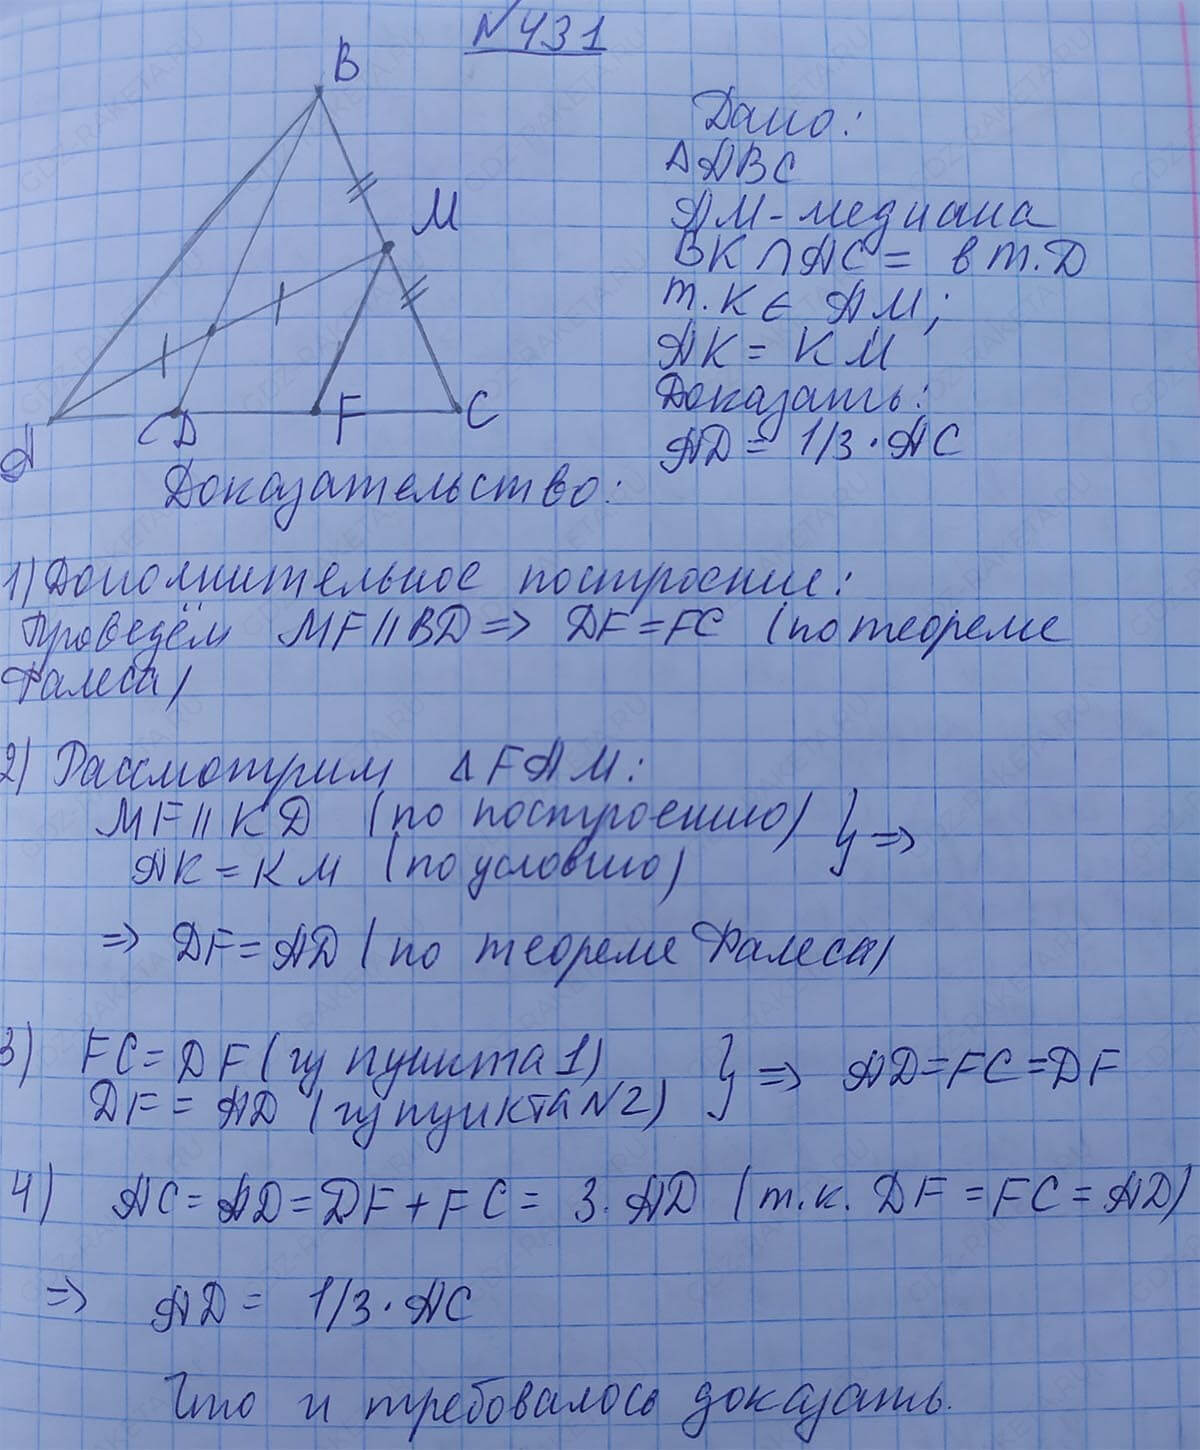 №431
B
M
A
D
F
C
Дано:
△ABC
AM - медиана
BK ∩ AC = в т. D
т. K ∈ AM;
AK = KM
Доказать:
AD = 1/3 · AC
Доказательство:
1) Дополнительное построение:
Проведём MF || BD => DF = FC (по теореме
Фалеса)
2) Рассмотрим △FAM:
MF || KD (по построению) } =>
AK = KM (по условию)
=> DF = AD (по теореме Фалеса)
3) FC = DF (из пункта 1) } => AD = FC = DF
DF = AD (из пункта №2)
4) AC = AD = DF + FC = 3 · AD (т.к. DF = FC = AD)
=> AD = 1/3 · AC
Что и требовалось доказать.
GDZ-RAKETA.RU